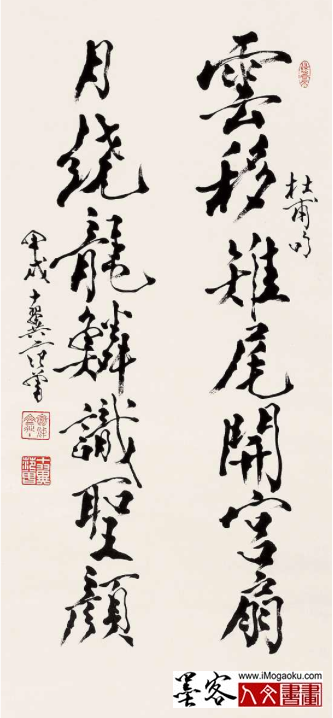 雲移雉尾開宮扇
杜甫句
月繞龍鱗識聖顏
甲戌十翼
www.iMogaoku.com
墨客人文書畫